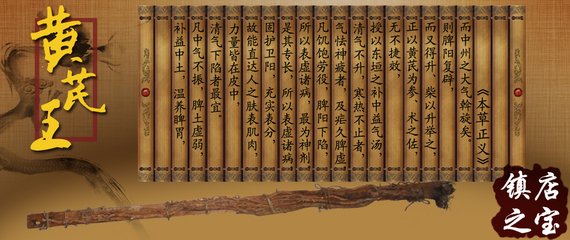 黄芪王
补益中土，温养脾胃，
凡中气不振，脾土虚弱，
清气下陷者最宜。
力量皆在皮中，
故能直达人之肤表肌肉，
固护卫阳，充实表分，
是其专长，所以表虚诸病
所以表虚诸病，最为神剂
凡饥饱劳役，脾阳下陷，
气怯神疲者，及疟久脾虚
清气不升，寒热不止者，
授以东垣之补中益气汤，
无不捷效，
正以黄芪为参、术之佐，
而又得升、柴以升举之，
则脾阳复辟，
而中州之大气斡旋矣。
《本草正义》
镇店
之宝